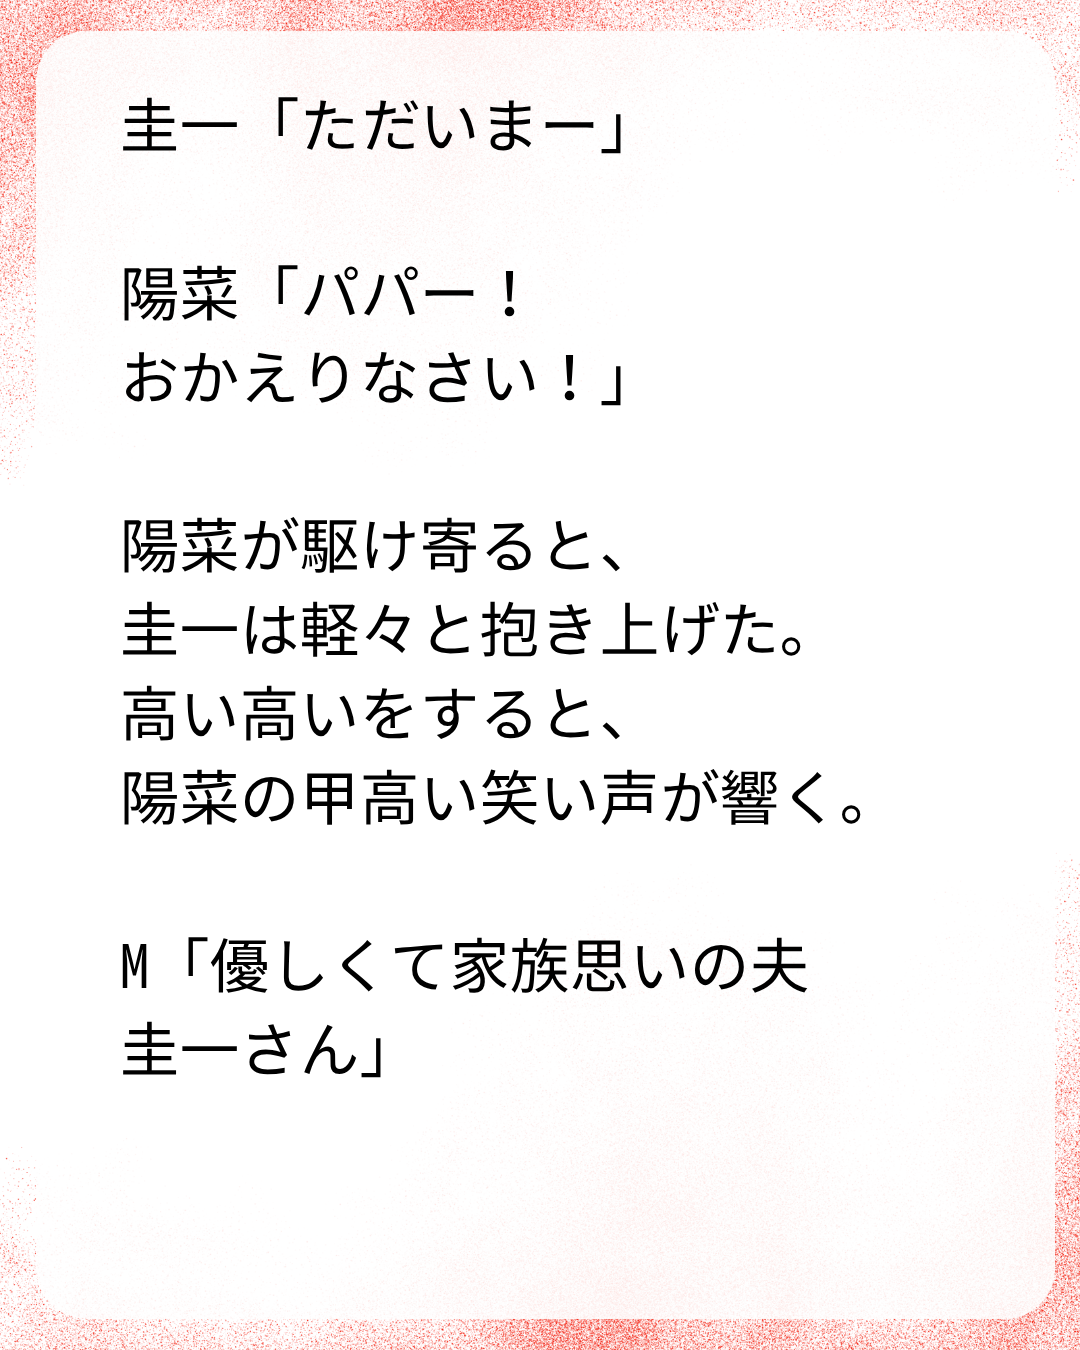 圭一「ただいまー」
陽菜「パパー！
おかえりなさい！」
陽菜が駆け寄ると、
圭一は軽々と抱き上げた。
高い高いをすると、
陽菜の甲高い笑い声が響く。
M「優しくて家族思いの夫
圭一さん」